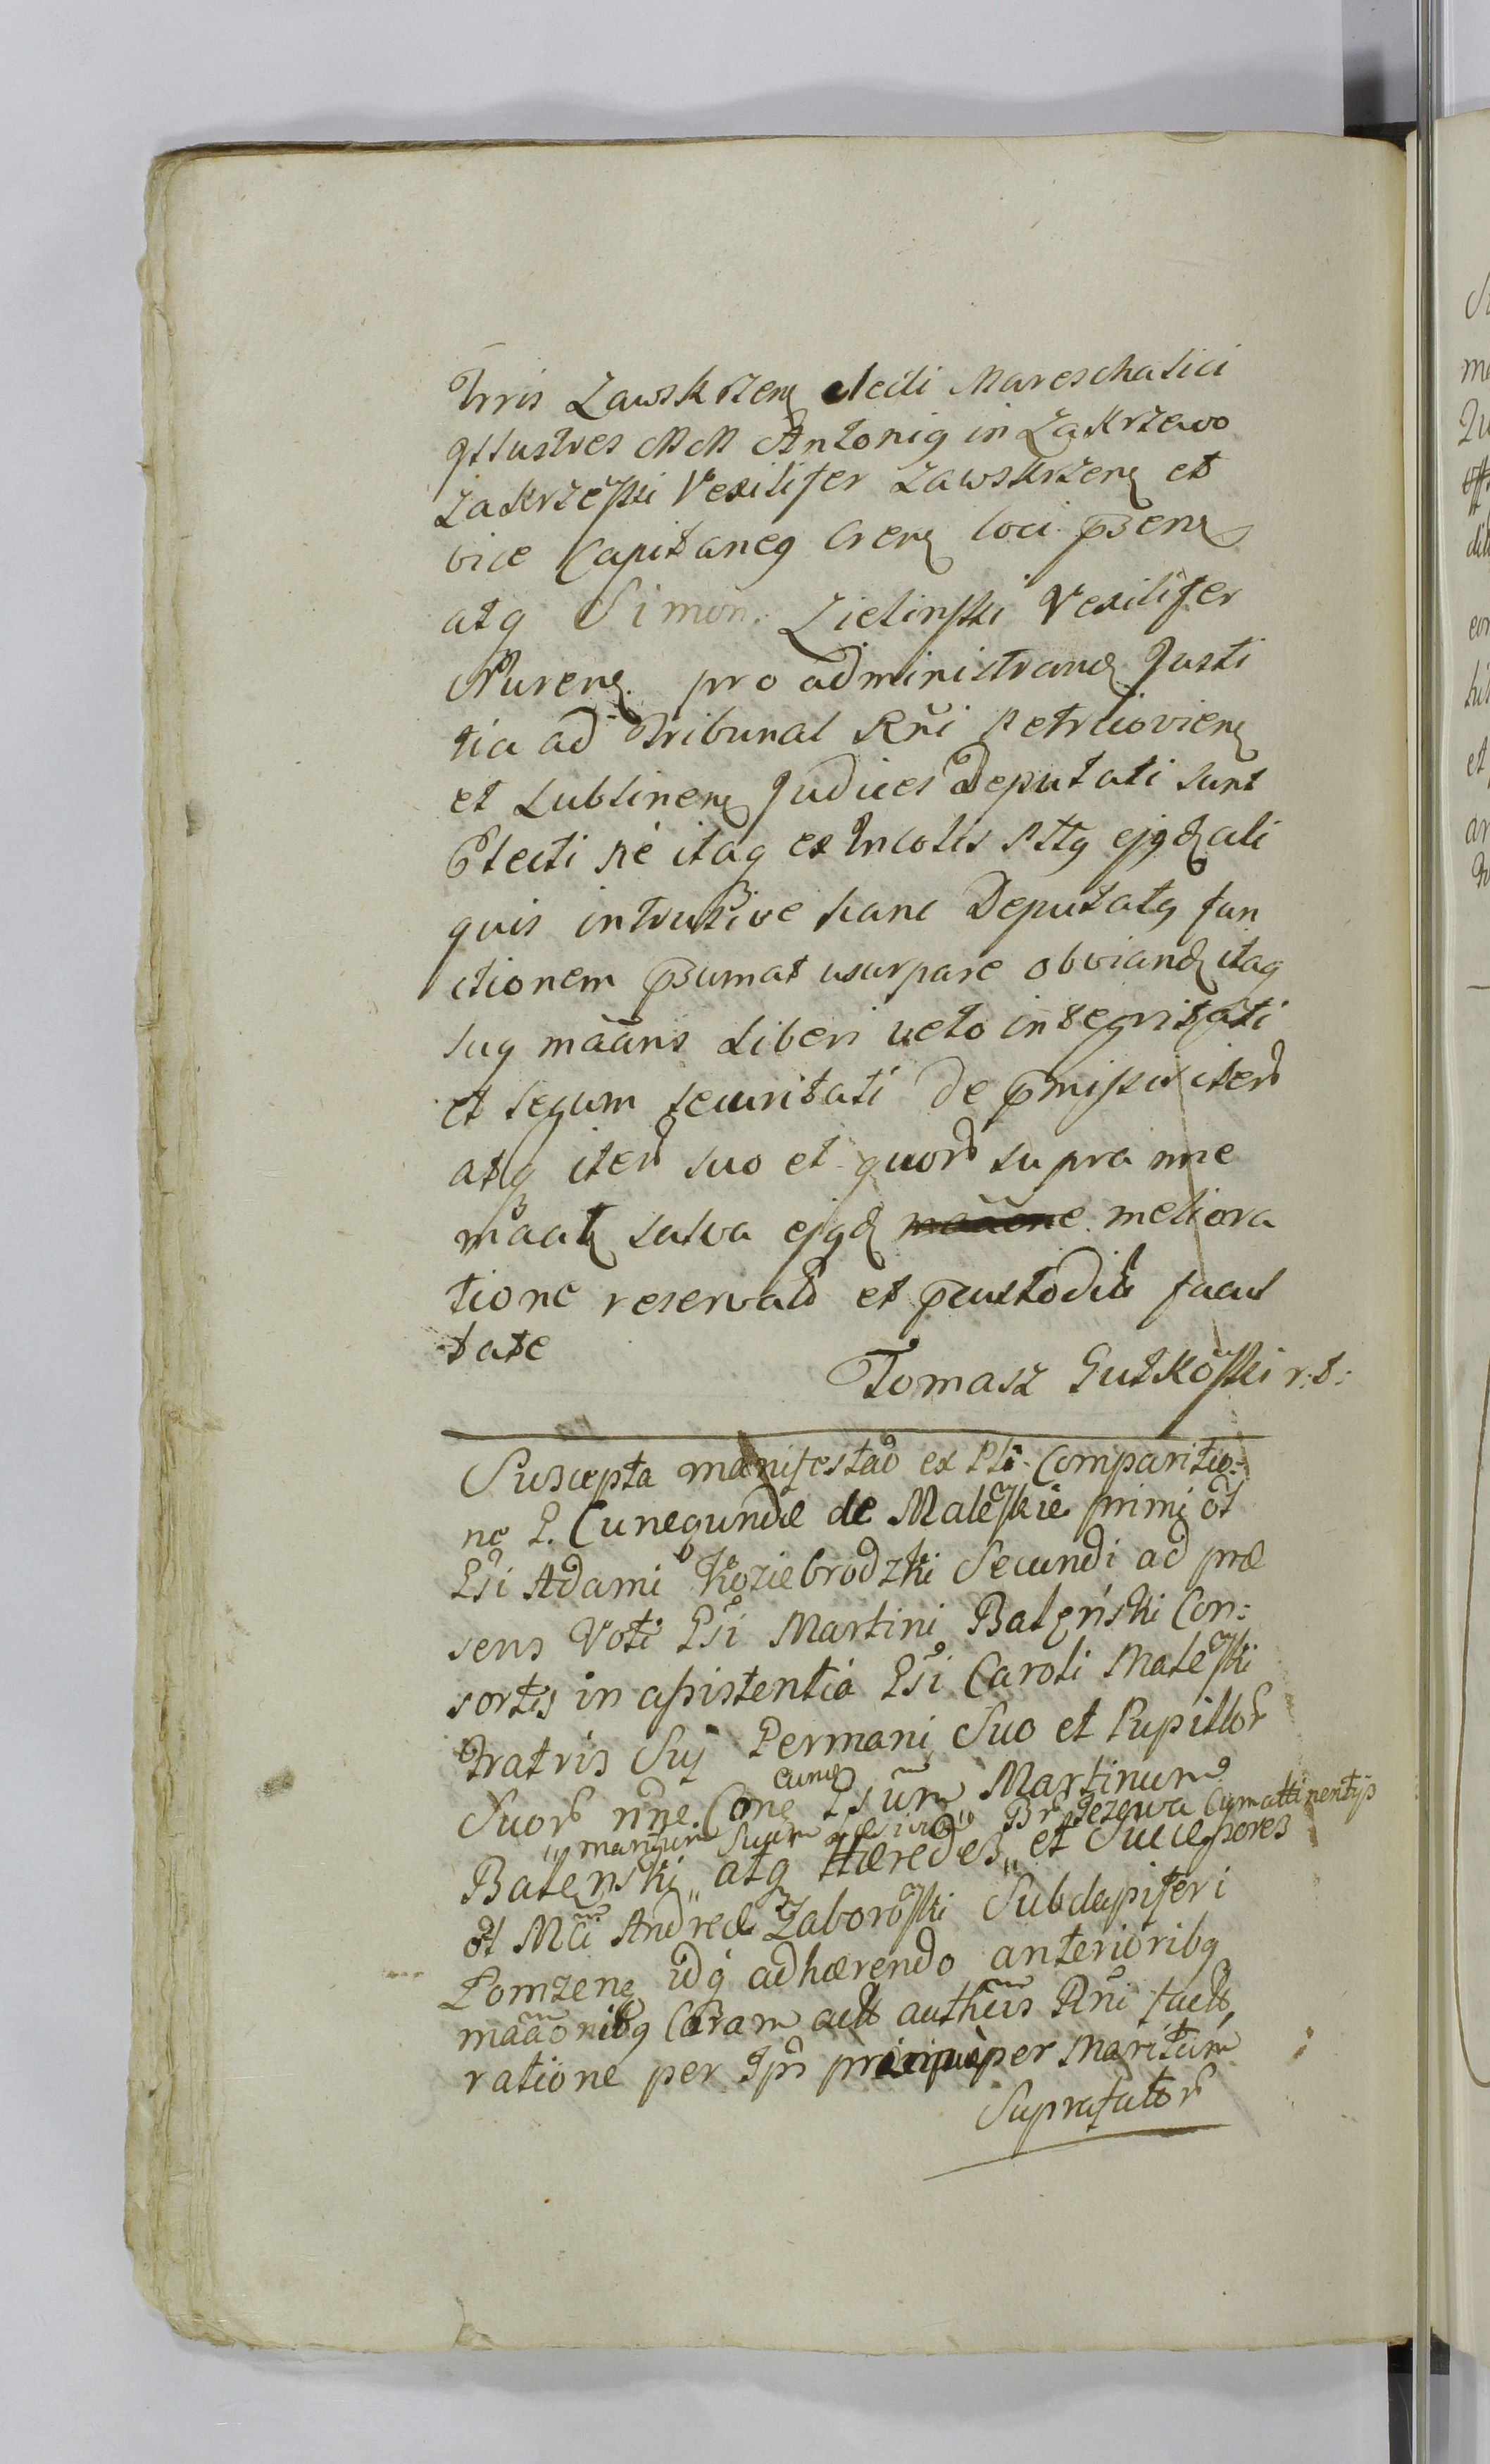 Trris Zawskrzen electi Mareschalici
Illustres MM Antonig in Zakrzewo
Zakrzeski Vexilifer Zawskrzen et
vice Capitaneg Cren loci psen
atq Simon. Zielinski Vexilifer
Nuren. pro administrand Justi
tia ad Tribunal Rni Petricovien
et Lublinen Judices Deputati sunt
Electi né itaq ex Incolis Pttg ejqd ali
quis intrusive hanc Deputatg fun
ctionem psumat usurpare obviand itaq
suq maans Liberi veto integritati
et legum securitati de pmissis iter
atq iter suo et quor supra nne
maat salva ejqd maaone meliora
tione reservata et pcustodita facul
tate
Tomasz Gutkoski r:t:
Suscepta manifestao ex Pti. Comparitio:
ne G. Cunegundæ de Maleskie primi ot
Gsi Adami Koziebrodzki Secundi ad præ
sens Voti Gsi Martini Batenski Con:
sortis in assistentia Gsi Caroli Maleski
Fratris Suj Germani Suo et Pupillor
Suor nne. Cone eund Gsum Martinum
maritum Suum Brzezewa Cum attinentijs
Batenski atq Hæredes et Successores
ot Mci Andreæ Zaboroski Subdapiferi
Lomzen idq adhærendo anterioribq
maaonibq Coram actis autheis Rni fact
ratione per Ips præcipuè per Maritum
Suprafator